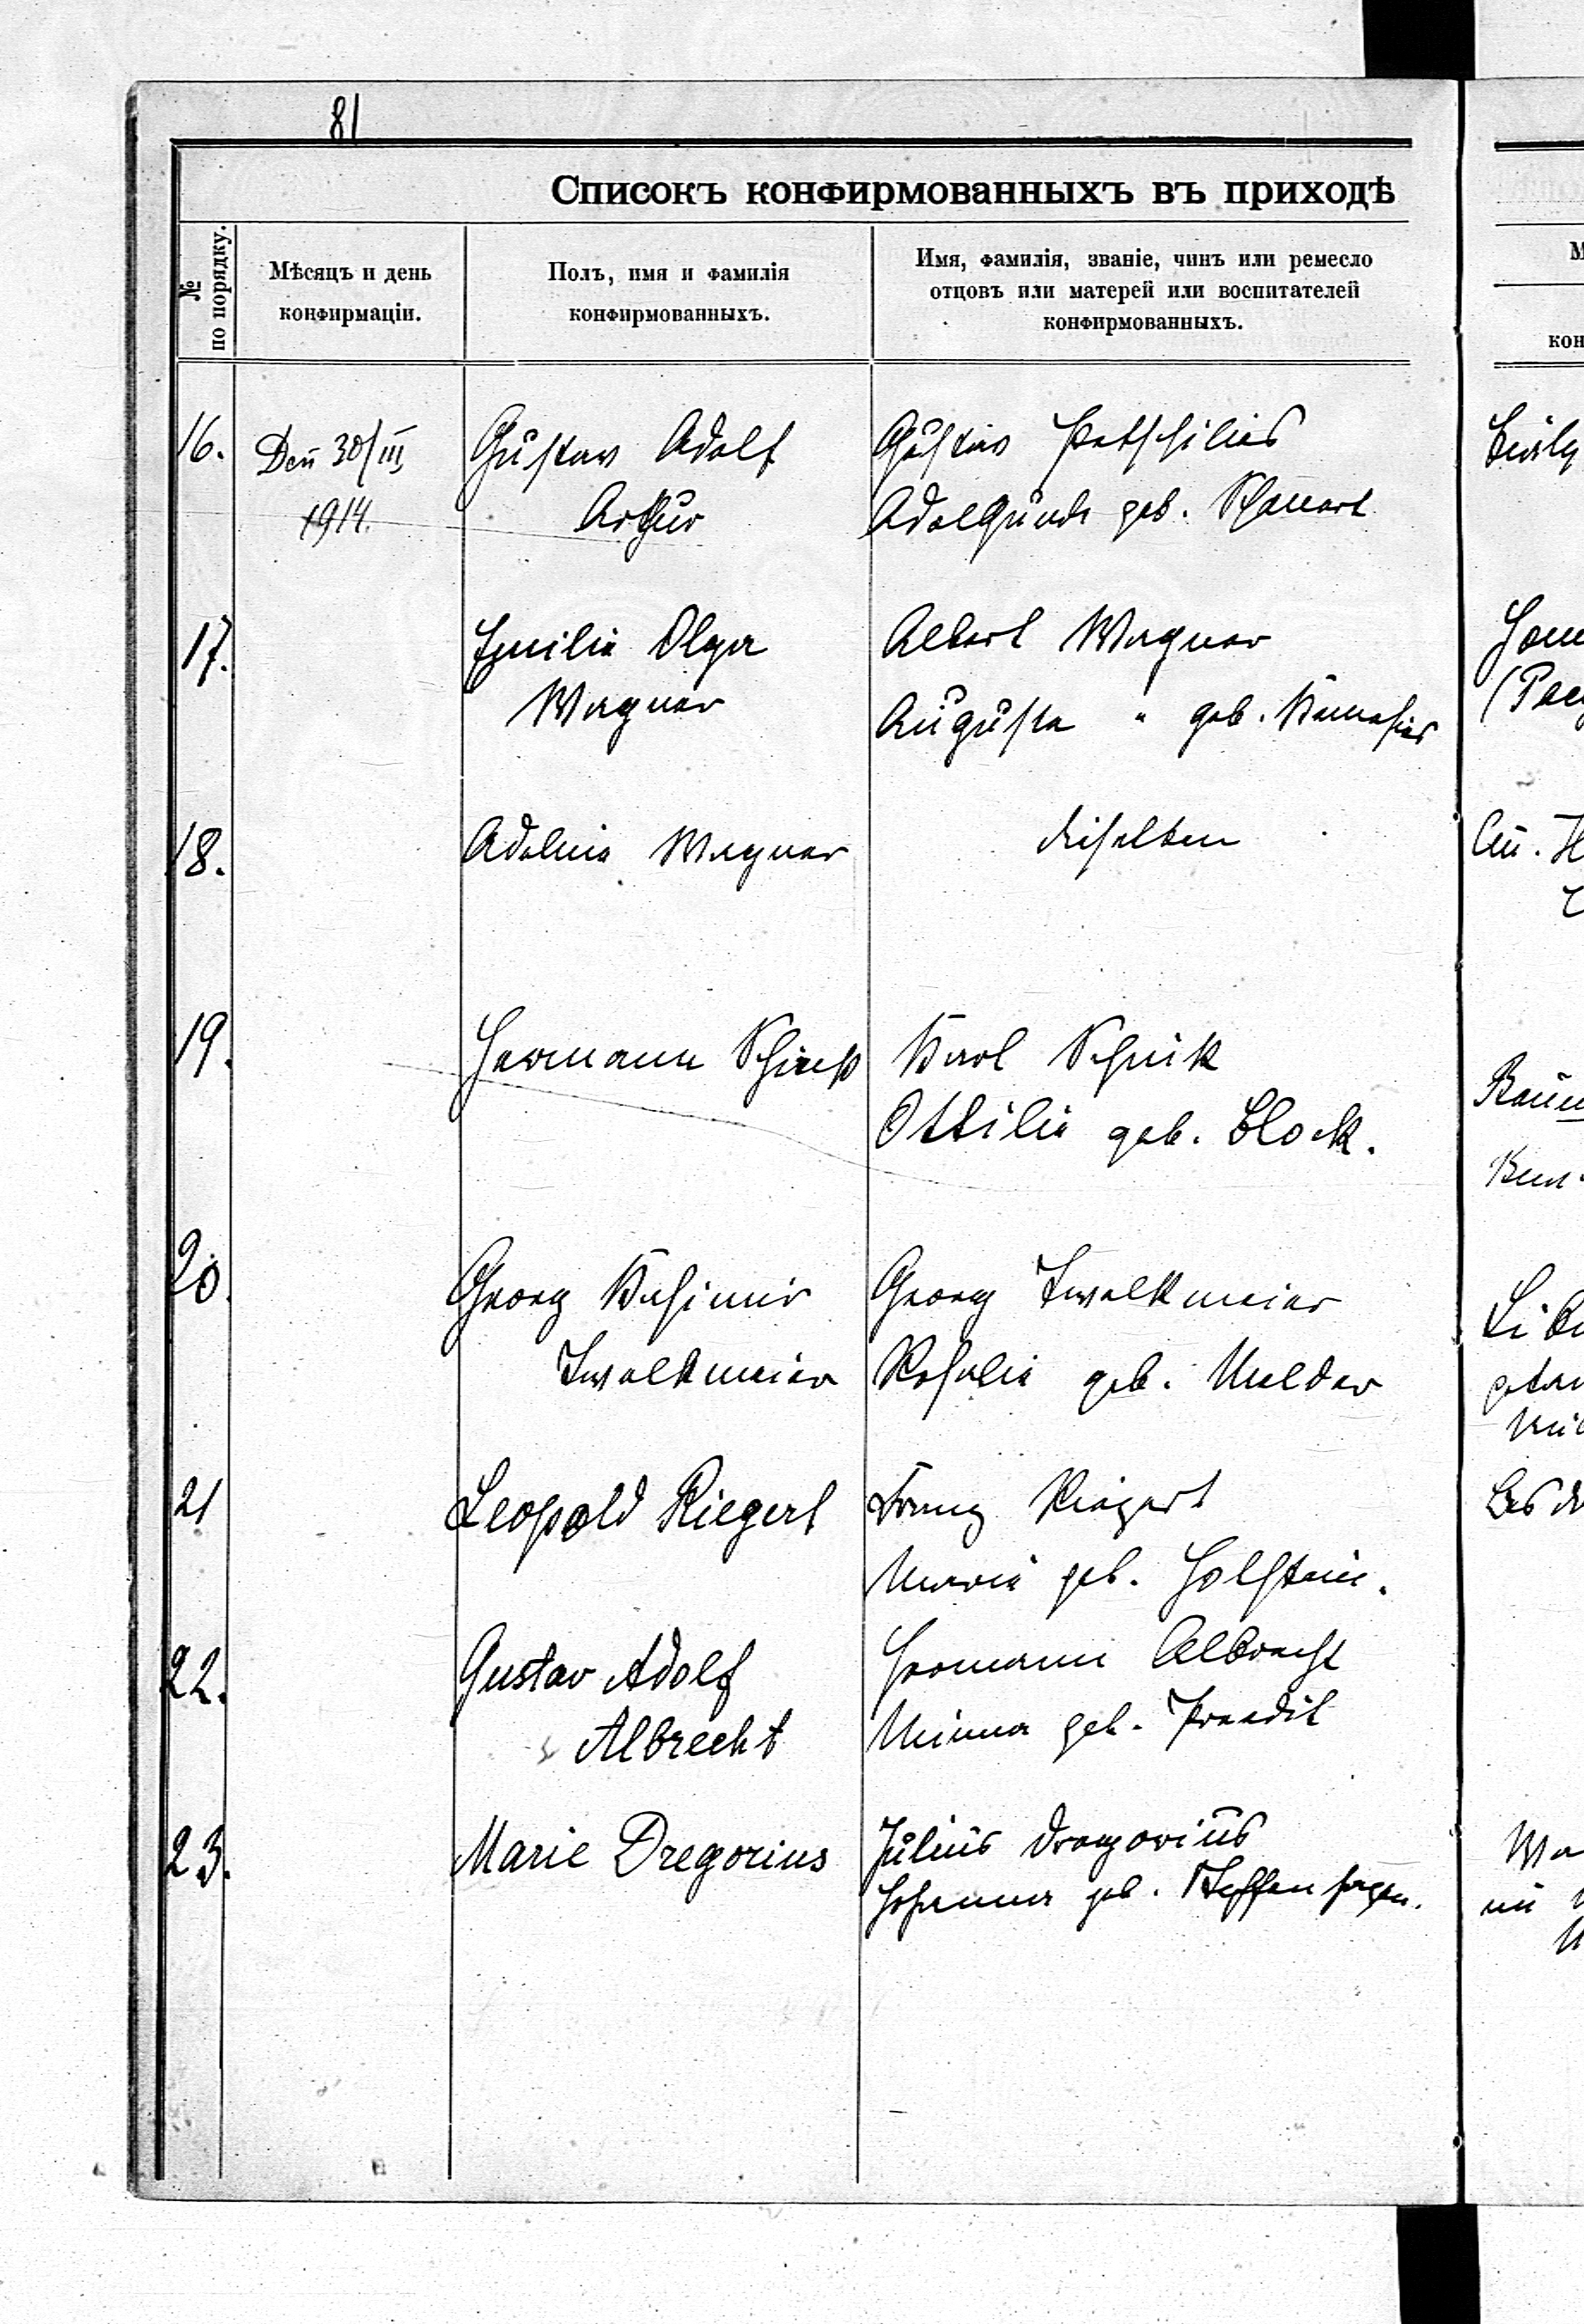 81
Списокъ конфирмованныхъ въ приходѣ
№ по порядку.
Мѣсяцъ и день
конфирмаціи.
Полъ, имя и фамилія
конфирмованныхъ.
Имя, фамилія, званіе, чинъ или ремесло
отцовъ или матерей или воспитателей
конфирмованныхъ.
16.
Den 30/III
1914.
Gustav Adolf
Arthur
Gustav
Adelgunde geb.
17.
Emilie Olga
Wagner
Albert Wagner
Auguste " geb.
18.
Adeline Wagner
dieselben
19.
Hermann
Karl Schick
Ottilie geb. Block.
20.
Georg Kasimir
Zwalkmeier
Georg Zwalkmeier
Rosalie geb. Melder
21
Leopold Riegert
Franz Riegert
Marie geb. Holstein.
22.
Gustav Adolf
Albrecht
Hermann Albrecht
Minna geb.
23.
Marie Dregorius
Julius Dregorius
Johanna geb. Steffenhagen.